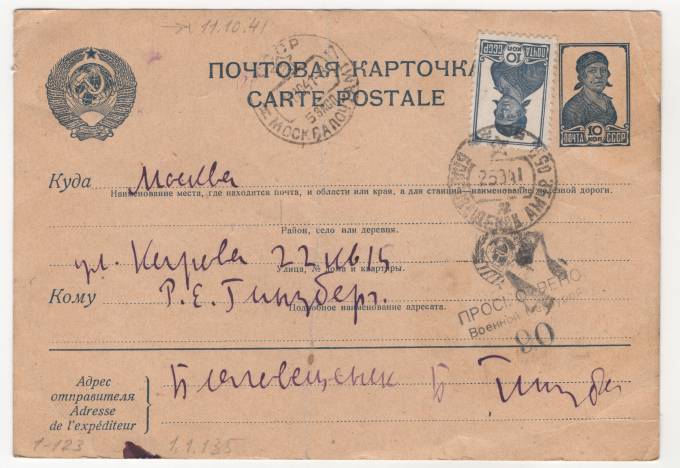 11.10.41
ПОЧТОВАЯ КАРТОЧКА
CARTE POSTALE
10 КОП
ПОЧТА
СССР
ПОЧТА 10 КОП. СССР
МОСКВА
25 10 41
Куда Москва
Наименование места, где находится почта, и области или края, а для станций—наименование железной дороги.
Район, село или деревня.
ул. Кирова 22 кв 15
Улица, № дома и квартиры.
Кому Р. Е. Гинзберг.
Подробное наименование адресата.
ПРОСМОТРЕНО
Военной
90
Адрес
отправителя
Adresse
de l'expéditeur
Б
1-123
1.1.135